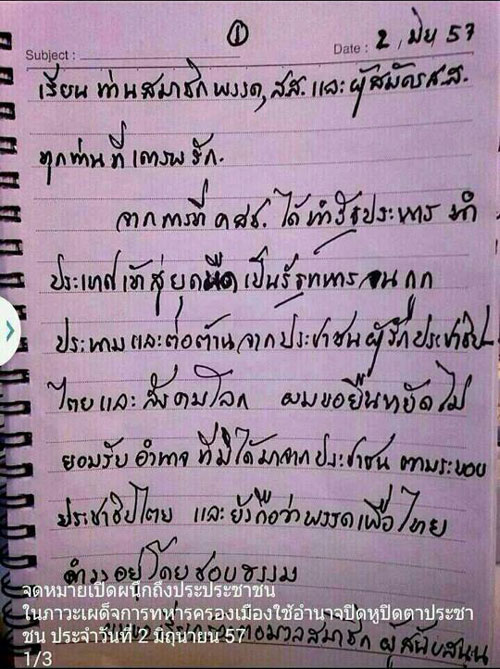 ①
Subject :
Date : 2 มิย 57
เรียน ท่านสมาชิกพรรค, สส. และผู้สมัคร ส.ส.
ทุกท่านที่เคารพรัก.
จากการที่ คสช. ได้ทำรัฐประหาร นำ
ประเทศเข้าสู่ยุคมืด เป็นรัฐทหาร จนถูก
ประนามและต่อต้านจากประชาชนผู้รักประชาธิป
ไตยและสังคมโลก ผมขอยืนหยัดไม่
ยอมรับอำนาจที่มิได้มาจากประชาชน ตามระบอบ
ประชาธิปไตย และยังถือว่าพรรคเพื่อไทย
ดำรงอยู่โดยชอบธรรม
จดหมายเปิดผนึกถึงประประชาชน
ในภาวะเผด็จการทหารครองเมืองใช้อำนาจปิดหูปิดตาประชา
ชน ประจำวันที่ 2 มิถุนายน 57
มวลสมาชิก ผู้สนับสนุน
1/3